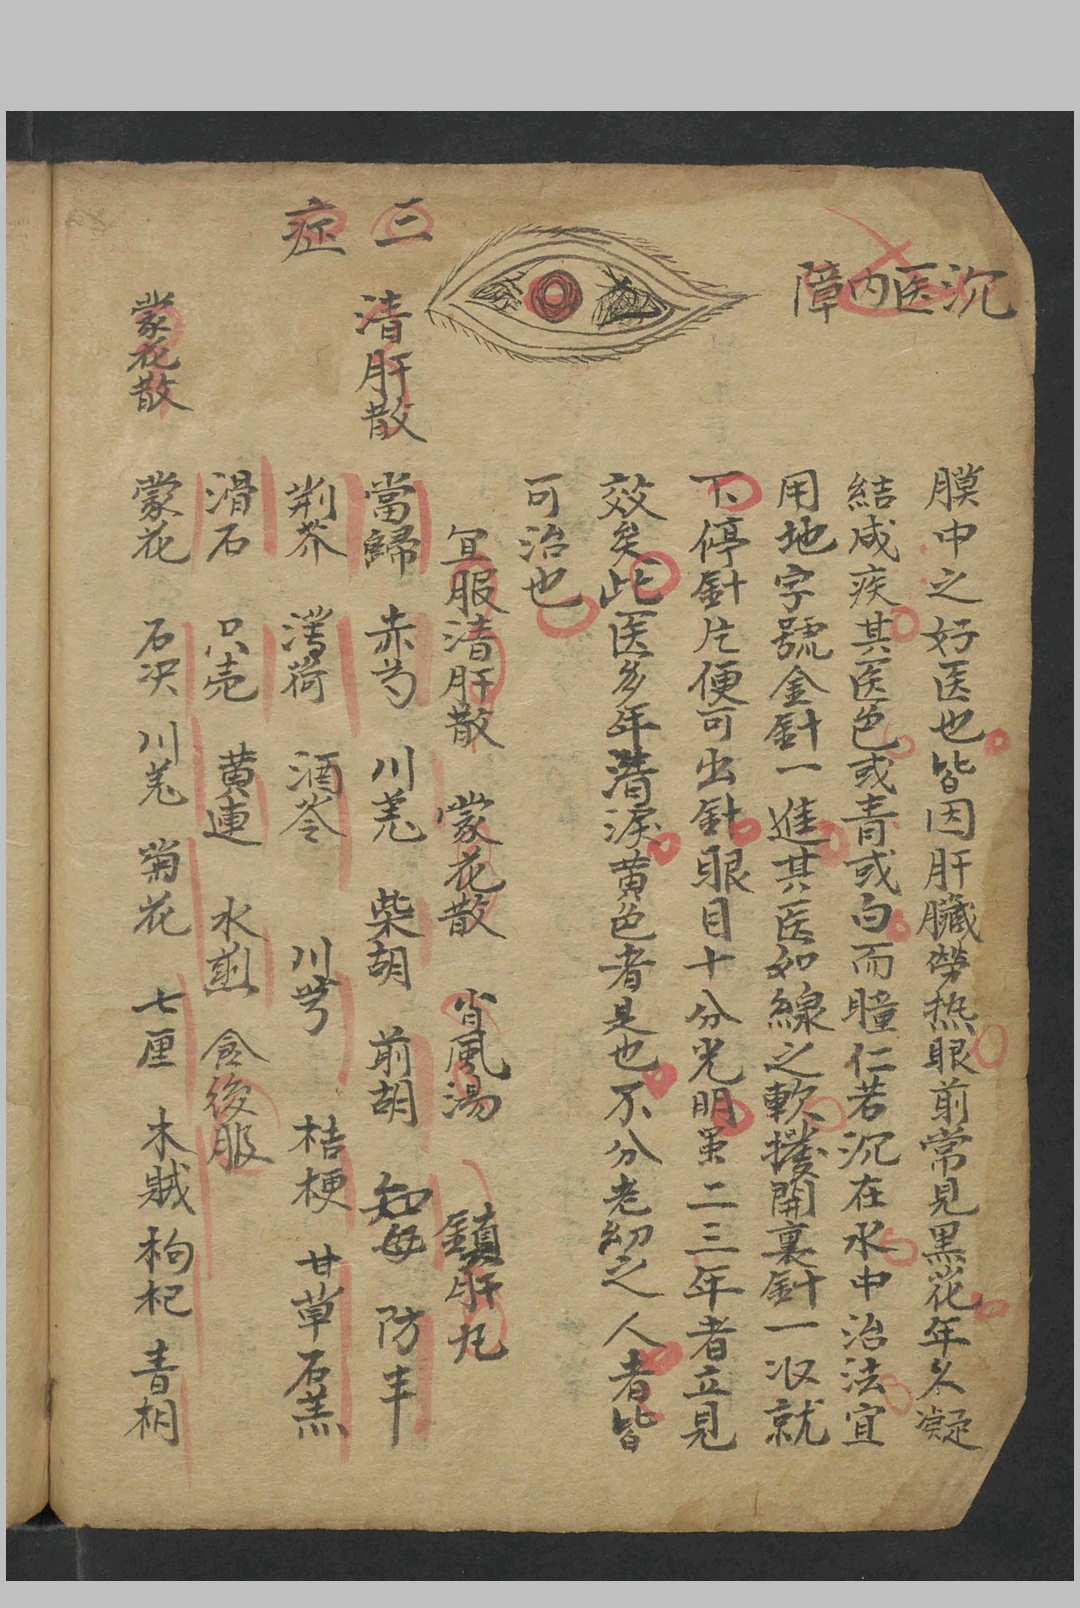 沉医内障
三症
膜中之好医也皆因肝臟勞热眼前常見黒花年久凝
結成疾其医色或青或白而瞳仁若沉在水中治法宜
用地字號金針一進其医如線之軟撥開裏針一次就
下停針片便可出針眼目十分光明虽二三年者立見
效矣此医多年潜淚黄色者是也不分老幼之人者皆
可治也
宜服清肝散 蒙花散 省風湯 鎮肝丸
清肝散 當歸 赤芍 川羌 柴胡 前胡 知母 防丰
荆芥 薄荷 酒芩 川芎 桔梗 甘草 石羔
滑石 只壳 黄連 水煎 食後服
蒙花散 蒙花 石决 川羌 菊花 七厘 木賊 枸杞 青相